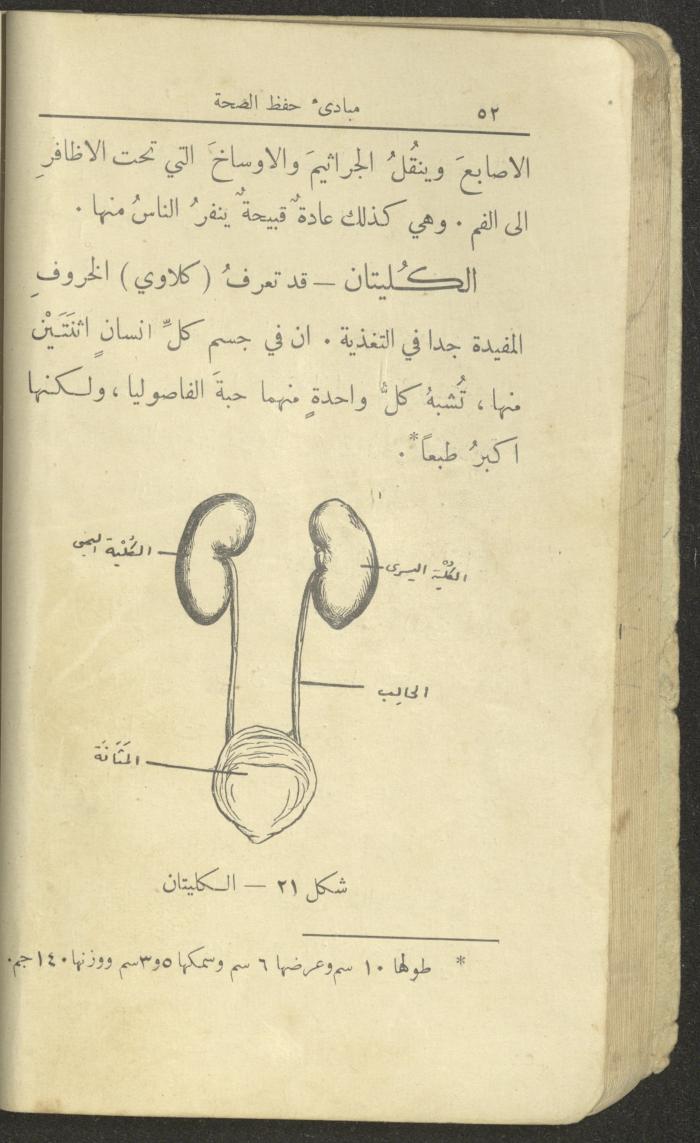 ٥٢ مبادىء حفظ الصحة
الاصابعَ وينقُلُ الجراثيمَ والاوساخَ التي تحت الاظافرِ
الى الفم . وهي كذلك عادةٌ قبيحةٌ ينفرُ الناسُ منها .
الكُليتان — قد تعرفُ ( كلاوي ) الخروفِ
المفيدة جدا في التغذية . ان في جسم كلِّ انسانٍ اثنَتَيْن
منها ، تُشبهُ كلُّ واحدةٍ منهما حبةَ الفاصوليا ، ولكنها
اكبرُ طبعاً* .
الكُلْيَة اليمنى
الكُلْيَة اليسرى
الحالِب
المَثَانَة
شكل ٢١ — الكليتان
* طولها ١٠ سم وعرضها ٦ سم وسمكها ٣٫٥ سم ووزنها ١٤٠ جم.